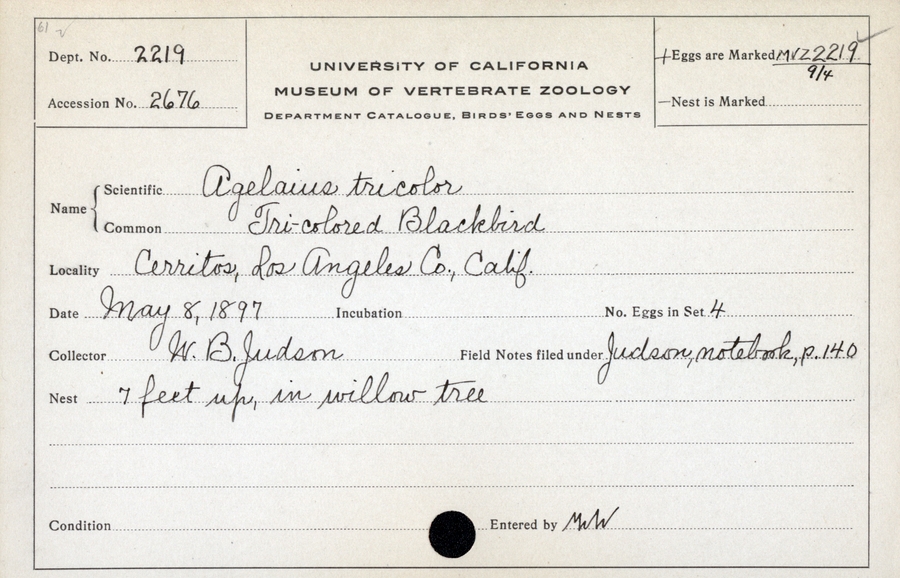 61
Dept. No. 2219
Accession No. 2676
UNIVERSITY OF CALIFORNIA
MUSEUM OF VERTEBRATE ZOOLOGY
DEPARTMENT CATALOGUE, BIRDS' EGGS AND NESTS
+Eggs are Marked MVZ2219
9/4
—Nest is Marked
Name
Scientific Agelaius tricolor
Common Tri-colored Blackbird
Locality Cerritos, Los Angeles Co., Calif.
Date May 8, 1897 Incubation No. Eggs in Set 4
Collector W. B. Judson Field Notes filed under Judson, notebook, p. 140
Nest 7 feet up, in willow tree
Condition Entered by